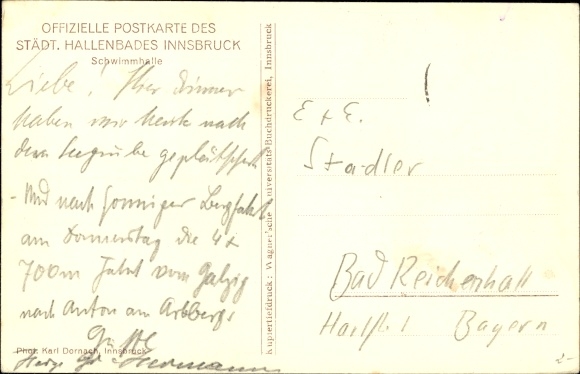 OFFIZIELLE POSTKARTE DES
STÄDT. HALLENBADES INNSBRUCK
Schwimmhalle
Liebe! Hier
haben wir heute nach
der Seegrube geplätschert
- Und nach sonniger Bergfahrt
am Donnerstag die 4 x
700m Fahrt vom Galzig
nach Anton am Arlberg
Grüße
Phot. Karl Dornach, Innsbruck
Hermann
Kupfertiefdruck: Wagner'sche Universitäts-Buchdruckerei, Innsbruck
E + E.
Stadler
Bad Reichenhall
Bayern